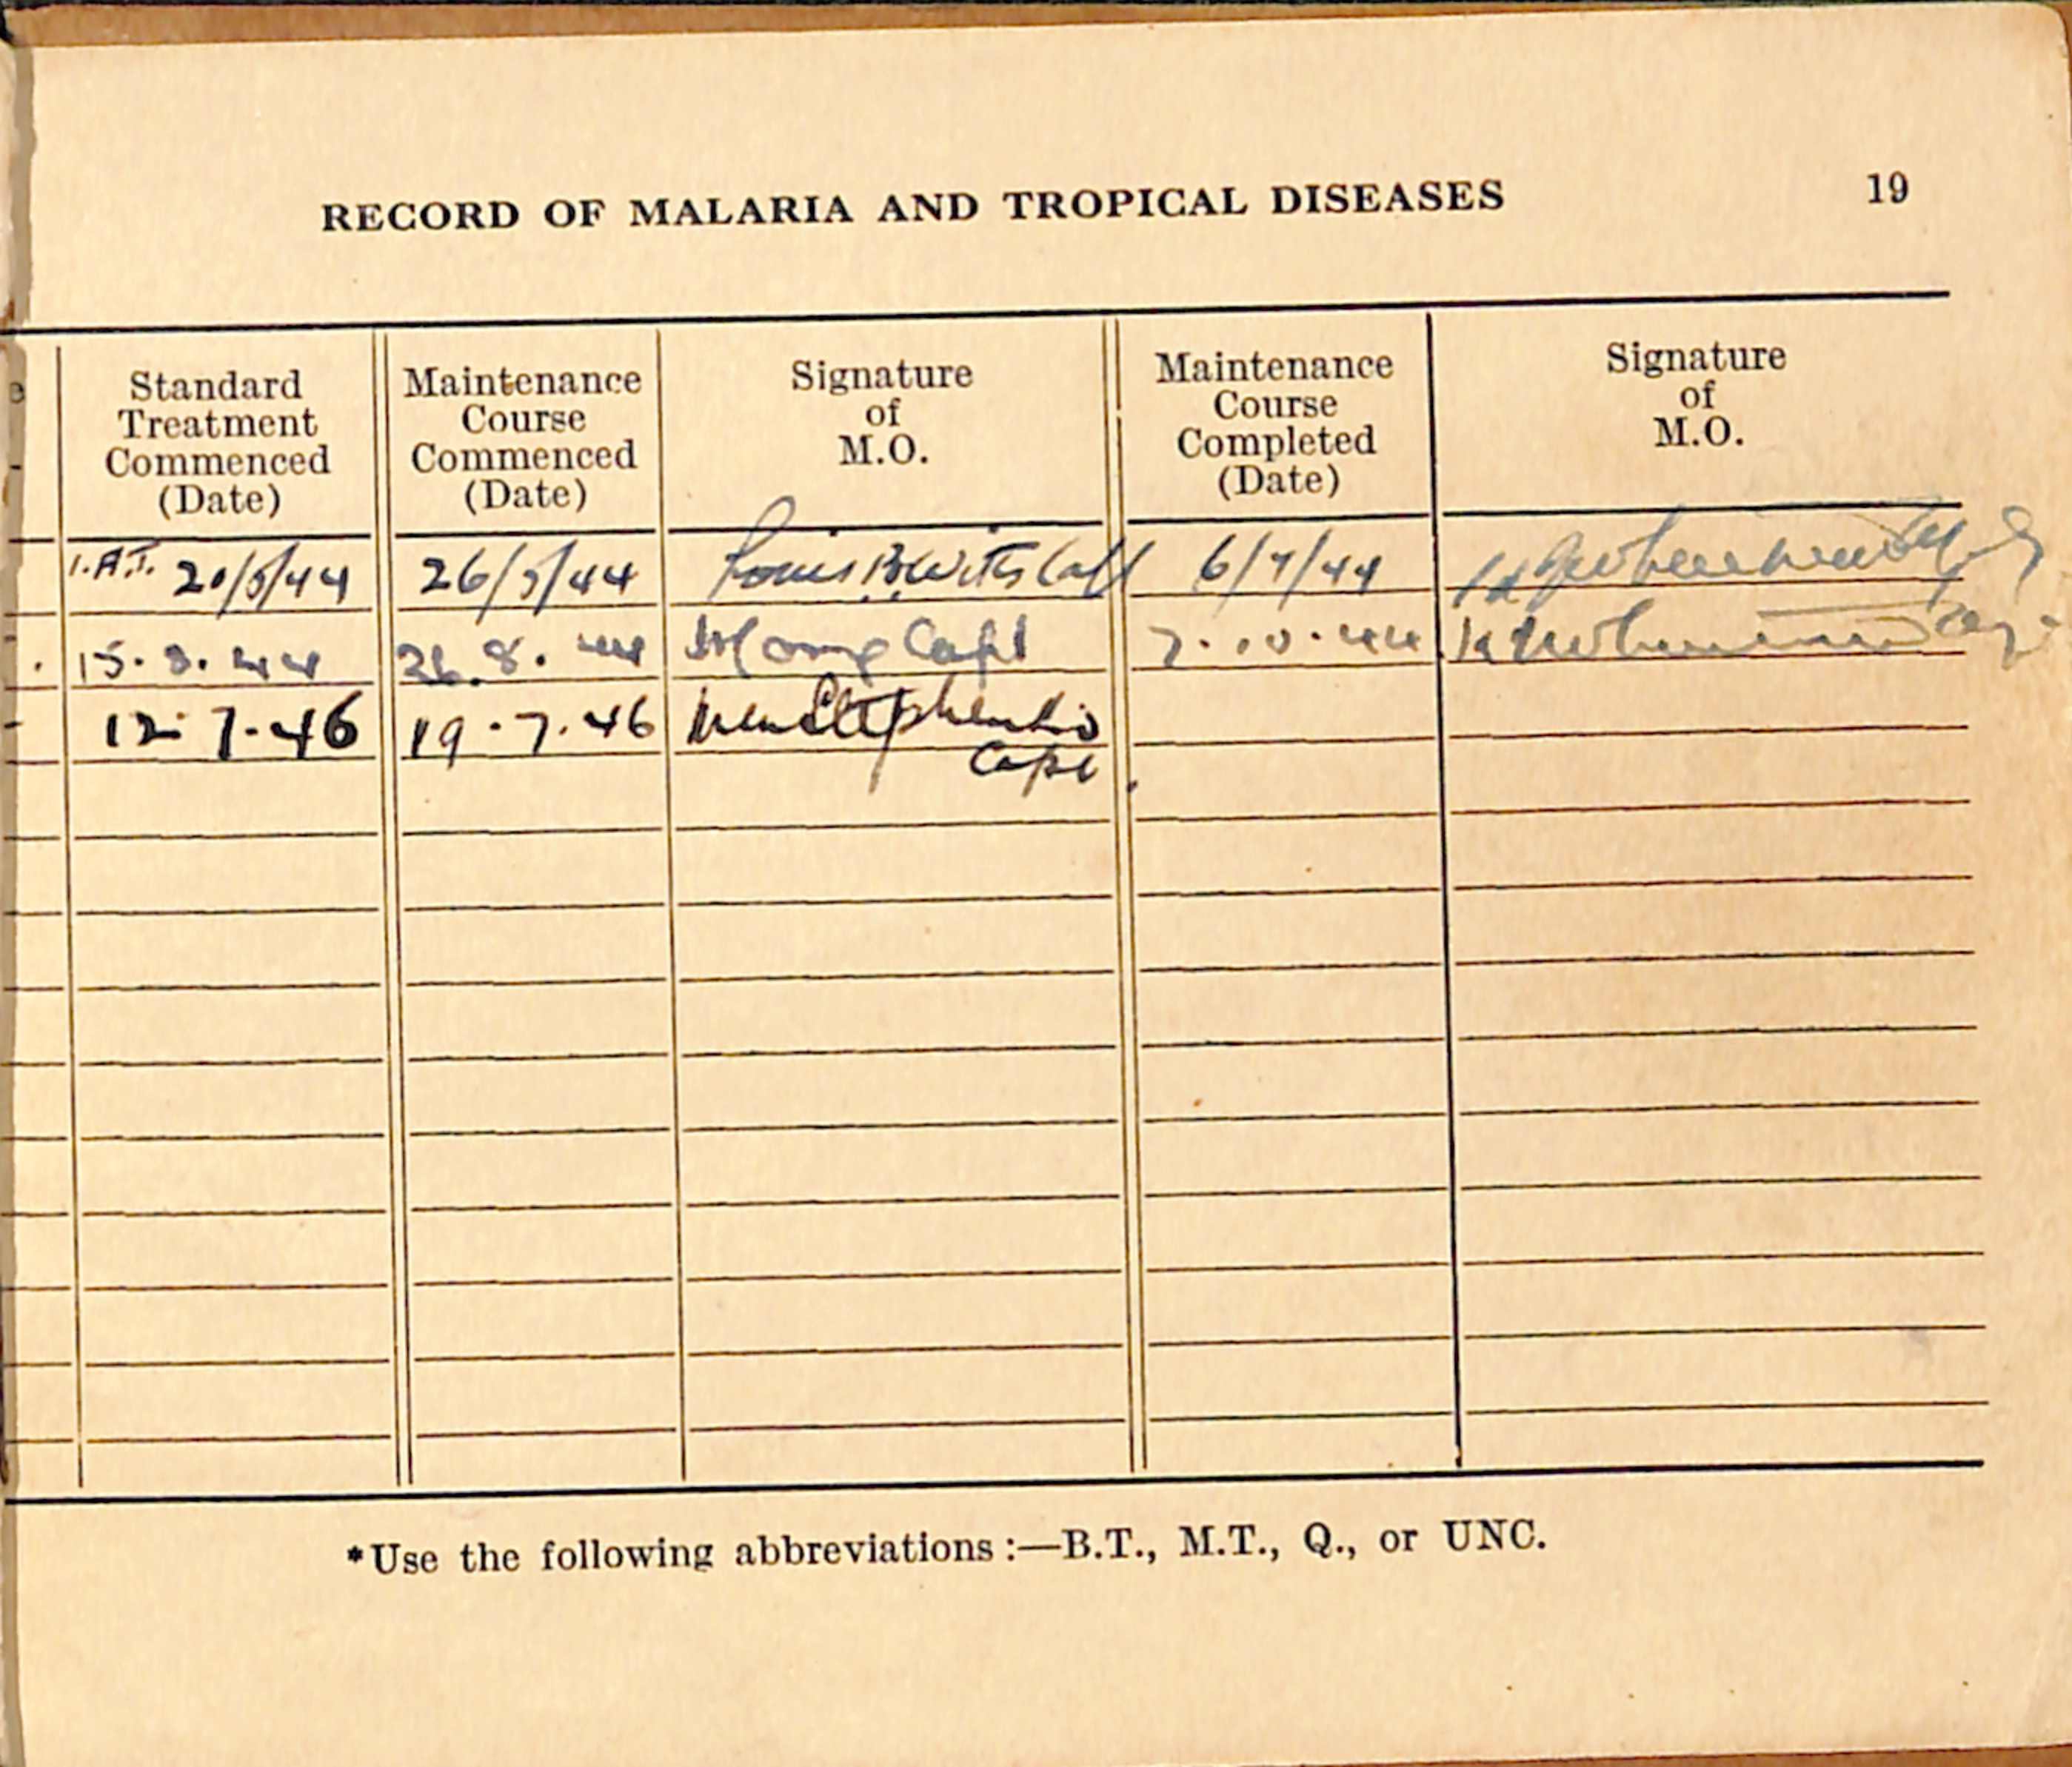 RECORD OF MALARIA AND TROPICAL DISEASES 19
Standard Treatment Commenced (Date)
Maintenance Course Commenced (Date)
Signature of M.O.
Maintenance Course Completed (Date)
Signature of M.O.
I.A.T. 20/5/44 26/5/44 Louis 6/7/44
15.8.44 26.8.44 Capt 7.10.44
12.7.46 19.7.46
Capt
*Use the following abbreviations :—B.T., M.T., Q., or UNC.